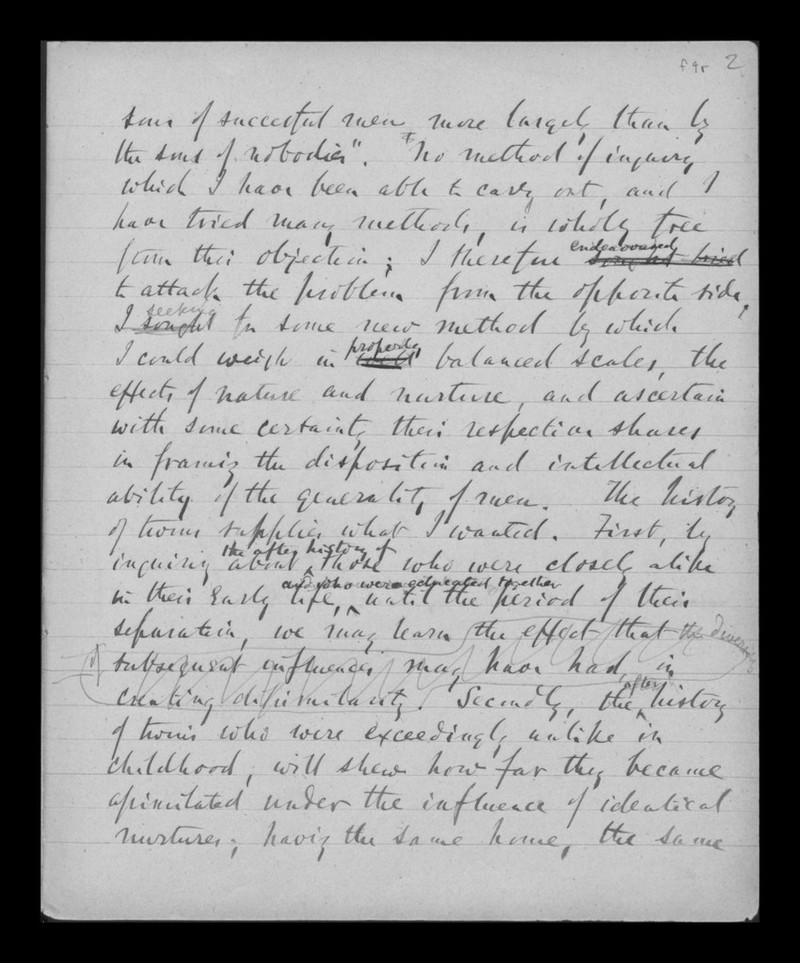 f 9r 2
sons of successful men more largely than by
the sons of nobodies". No method of inquiry
which I have been able to carry out, and I
have tried many methods, is wholly free
from this objection; I therefore endeavoured
to attack the problem from the opposite side,
seeking
I sought for some new method by which
properly
I could weigh in balanced scales, the
effects of nature and nurture, and ascertain
with some certainty their respective shares
in framing the disposition and intellectual
ability of the generality of men. The history
of twins supplies what I wanted. First, by
the after history of
inquiring about those who were closely alike
and who were educated together
in their early life, until the period of their
separation, we may learn the effect that the
of subsequent influences may have had, in
after
creating dissimilarity. Secondly, the history
of twins who were exceedingly unlike in
childhood, will shew how far they became
assimilated under the influence of identical
nurtures; having the same home, the same